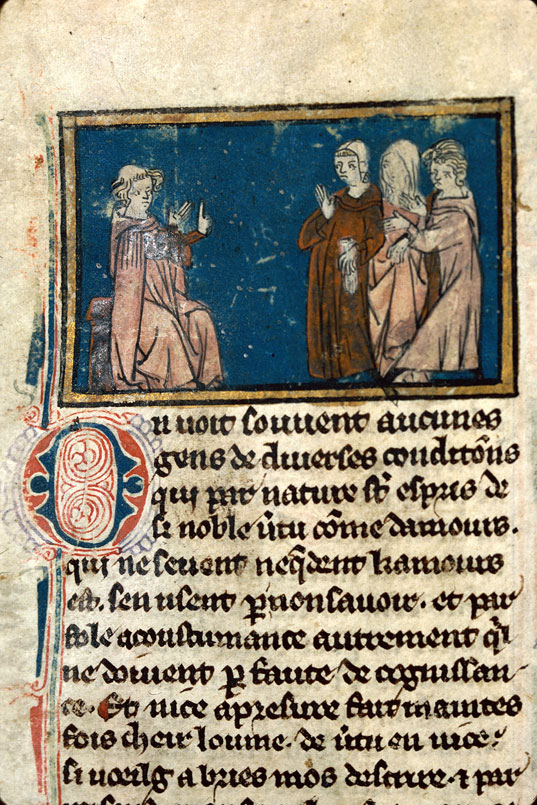 On uoit souuent aucunes
gens de diuerses conditōns
qui par nature st̄ espris de
si noble ūtu cōme damours.
qui ne seuent neq̄dent kamours
est. sen usent ꝑ non sauoir. et par
fole acoustumance autrement q̄l
ne doiuent ꝑ faute de cognissan-
ce. Et nice ap̄resure fait maintes
fois cheir loume. de ūtu en uice.
si uoeilg a bries mos descrire. ⁊ par